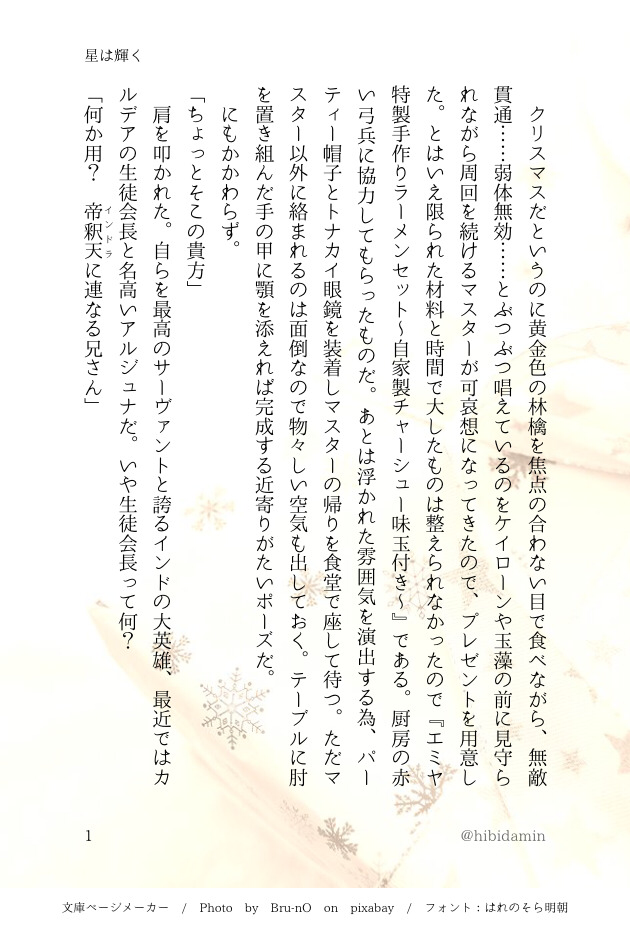 星は輝く
　クリスマスだというのに黄金色の林檎を焦点の合わない目で食べながら、無敵
貫通……弱体無効……とぶつぶつ唱えているのをケイローンや玉藻の前に見守ら
れながら周回を続けるマスターが可哀想になってきたので、プレゼントを用意し
た。とはいえ限られた材料と時間で大したものは整えられなかったので『エミヤ
特製手作りラーメンセット～自家製チャーシュー味玉付き～』である。厨房の赤
い弓兵に協力してもらったものだ。あとは浮かれた雰囲気を演出する為、パー
ティー帽子とトナカイ眼鏡を装着しマスターの帰りを食堂で座して待つ。ただマ
スター以外に絡まれるのは面倒なので物々しい空気も出しておく。テーブルに肘
を置き組んだ手の甲に顎を添えれば完成する近寄りがたいポーズだ。
　にもかかわらず。
「ちょっとそこの貴方」
　肩を叩かれた。自らを最高のサーヴァントと誇るインドの大英雄、最近ではカ
ルデアの生徒会長と名高いアルジュナだ。いや生徒会長って何？
「何か用？　帝釈天インドラに連なる兄さん」
1
@hibidamin
文庫ページメーカー / Photo by Bru-nO on pixabay / フォント：はれのそら明朝